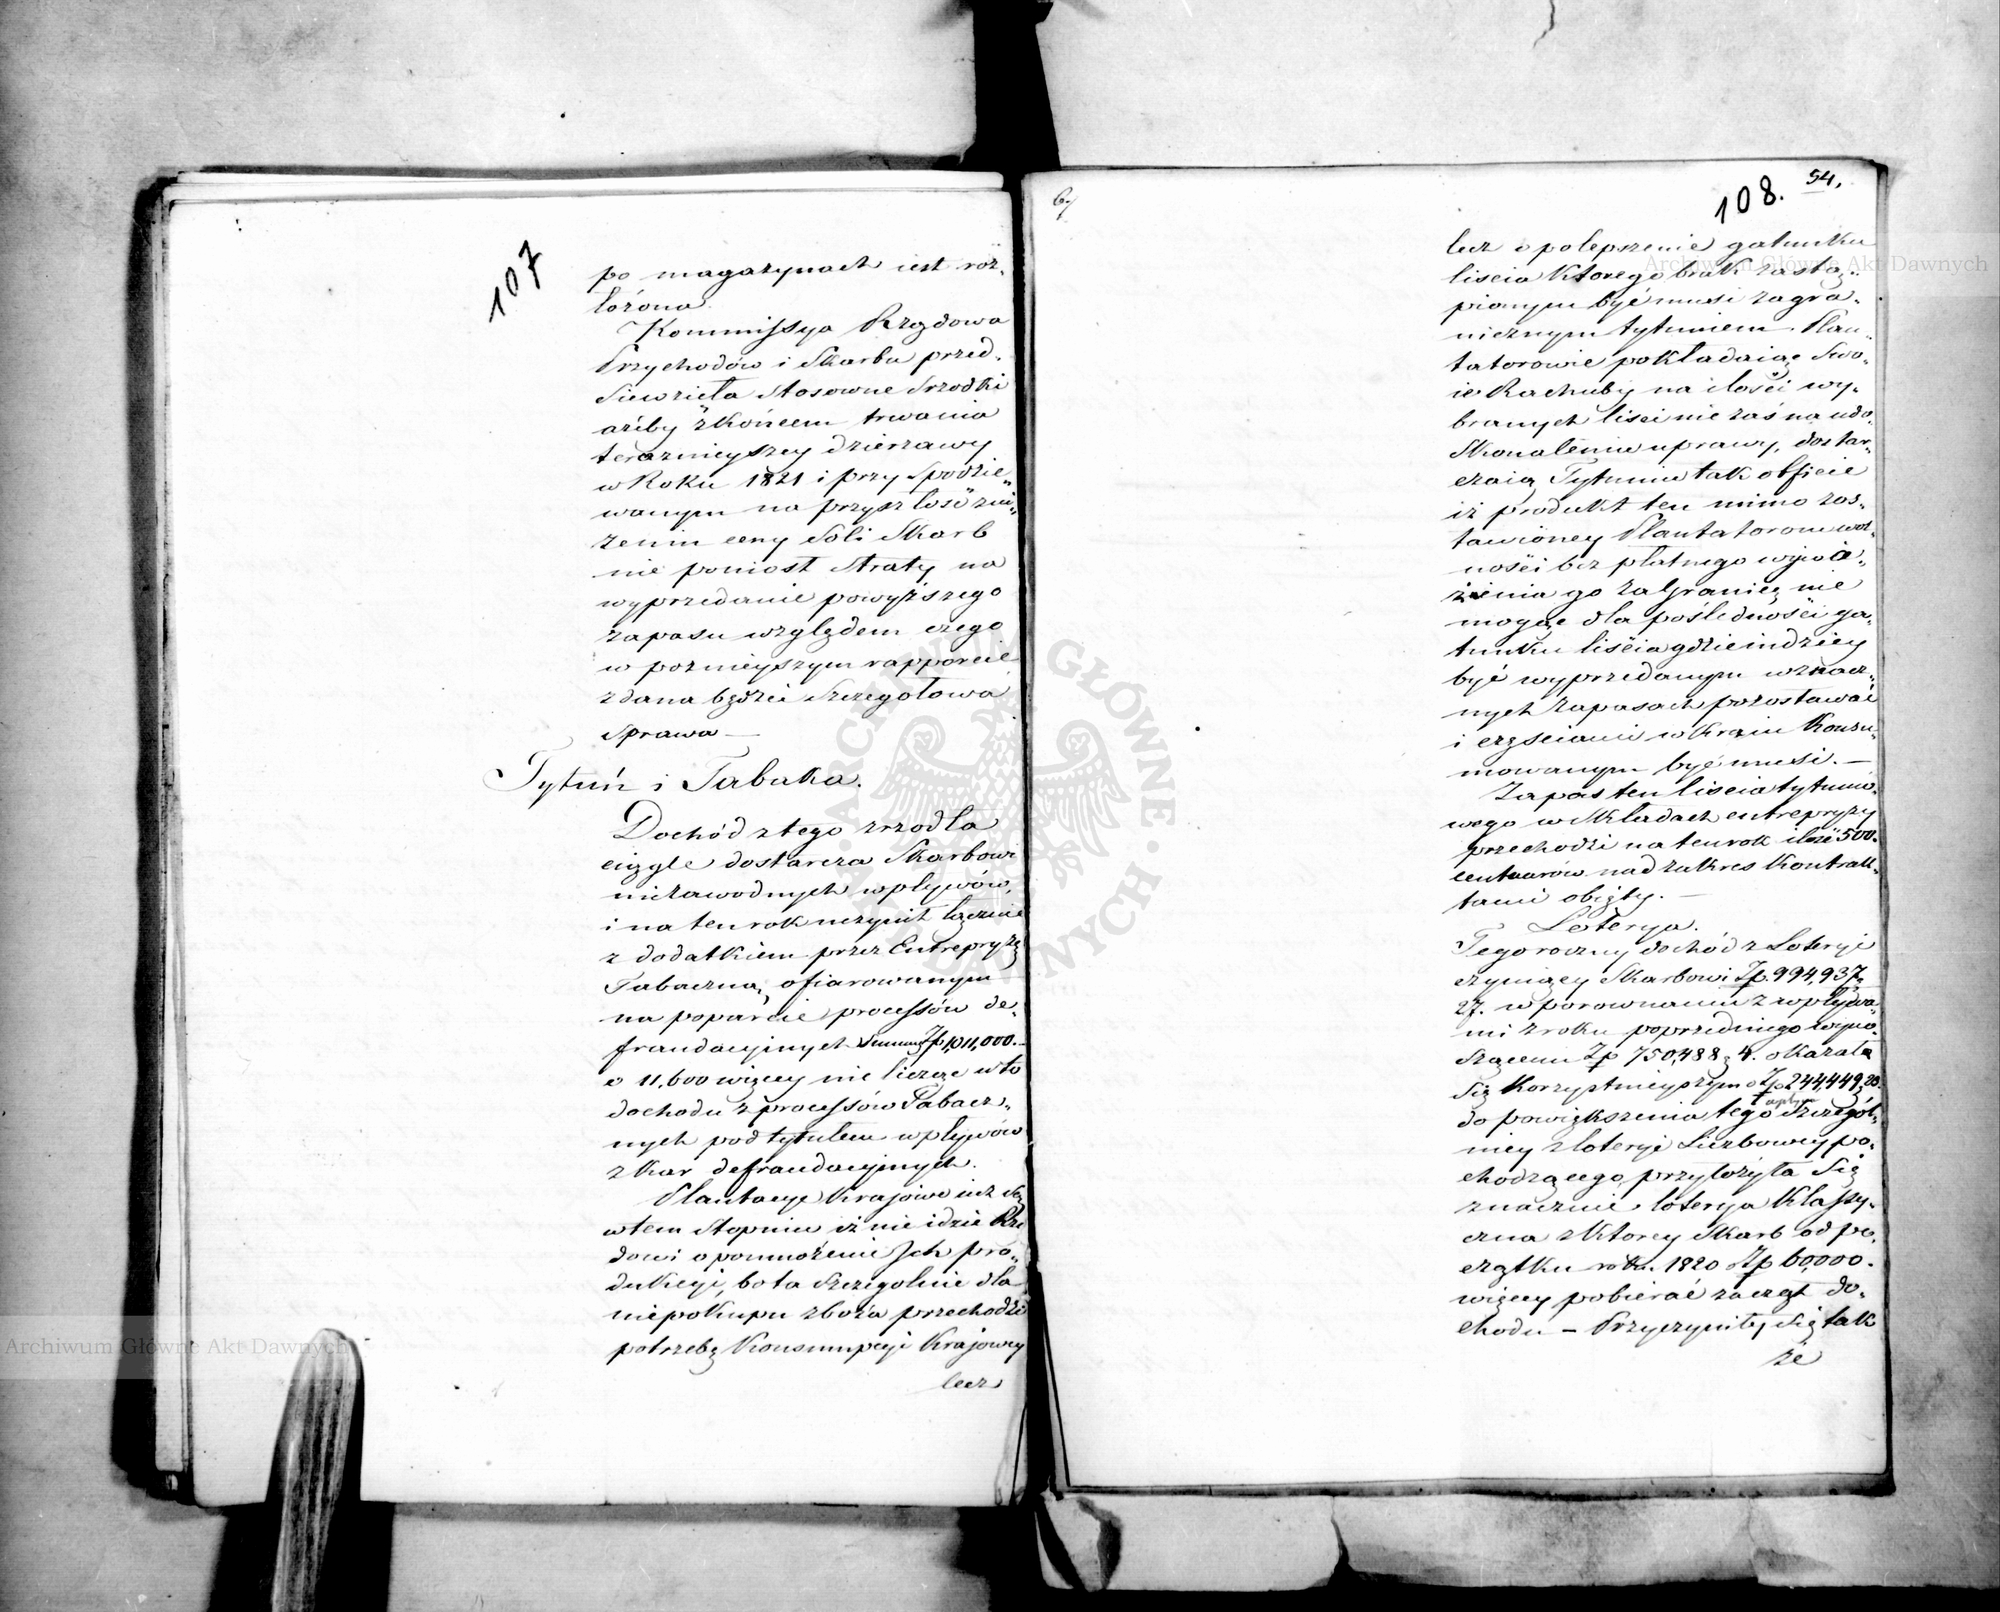 107
po magazynach iest roz„
łożona.
Kommissya Rządowa
Przychodów i Skarbu przed„
siewzieła stosowne srzodki
ażeby z końcem trwania
teraznieyszey dzierzawy
w Roku 1821 i przy spodzie„
wanym na przyszłość zni„
żeniu ceny Soli Skarb
nie poniosł straty na
wyprzedanie powyższego
zapasu względem czego
w poznieyszym rapporcie
zdana będzie szczegołowa
sprawa —
Tytuń i Tabaka.
Dochód z tego zrzodła
ciągle dostarcza Skarbowi
niezawodnych wpływów,
i na ten rok uczynił łącznie
z dodatkiem przez Entrepryzę
Tabaczną ofiarowanym
na poparcie processów de„
fraudacyjnych Summę Zp 1,011,000.—
o 11,600 więcey nie licząc w to
dochodu z processów Tabacz„
nych pod tytułem wpływów
z kar defraudacyjnych.
Plantacye Krajowe iuż są
w tem stopniu iż nie idzie Rzą
dowi o pomnożenie Ich pro„
dukcyi, bo ta szczegolnie dla
niepokupu zboża przechodzi
potrzebę Konsumpcyi Krajowey
lecz
67
108. 54.
lecz o polepszenie gatunku
liscia którego brak zastą„
pionym być musi zagra„
nicznym tytuniem. Plan„
tatorowie pokładaiąc swo„
ie Rachuby na ilości wy„
branych lisci nie zaś na udo„
skonaleniu uprawy, dostar„
czaią Tytuniu tak obficie
iż produkt ten mimo zos„
tawioney Plantatorom wol„
ności bez płatnego wywie„
zienia go za Granicę nie
mogąc dla pośledności ga„
tunku liścia gdzieindziey
być wyprzedanym w znacz„
nych zapasach pozostawać
i częsciami w Kraiu Konsu„
mowanym być musi. —
Zapas ten liscia tytunio„
wego w składach entrepryzy
przechodzi na ten rok ilość 500.
centnarów nad zakres Kontrak„
tami obięty. —
Loterya.
Tegoroczny dochód z Loteryi
czyniący Skarbowi Zp. 994,937„
27. w porownaniu z wpływa„
mi z roku poprzedniego wyno„
szącemi Zp 750,488„ 4. okazała
się korzystnieyszym o Zp 244,449„23.
do powiększenia tego wpływu szczegól„
niey z loteryi Liczbowey po„
chodzącego, przyłożyła się
znacznie loterya Klassy„
czna z którey Skarb od po„
czątku roku 1820 Zp 60,000.
więcey pobierać zaczął do„
chodu — Przyczyniły się tak
że